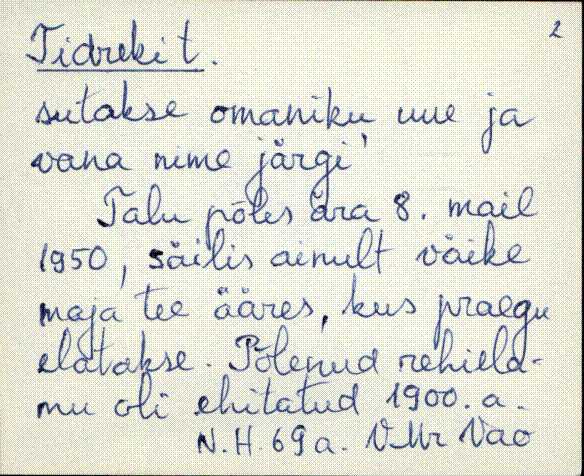 2
Tidreki t.
sutakse omaniku uue ja
vana nime järgi'
Talu põles ära 8. mail
1950, säilis ainult väike
maja tee ääres, kus praegu
elatakse. Põlenud rehiela-
mu oli ehitatud 1900. a.
N.H. 69 a. VMr Vao